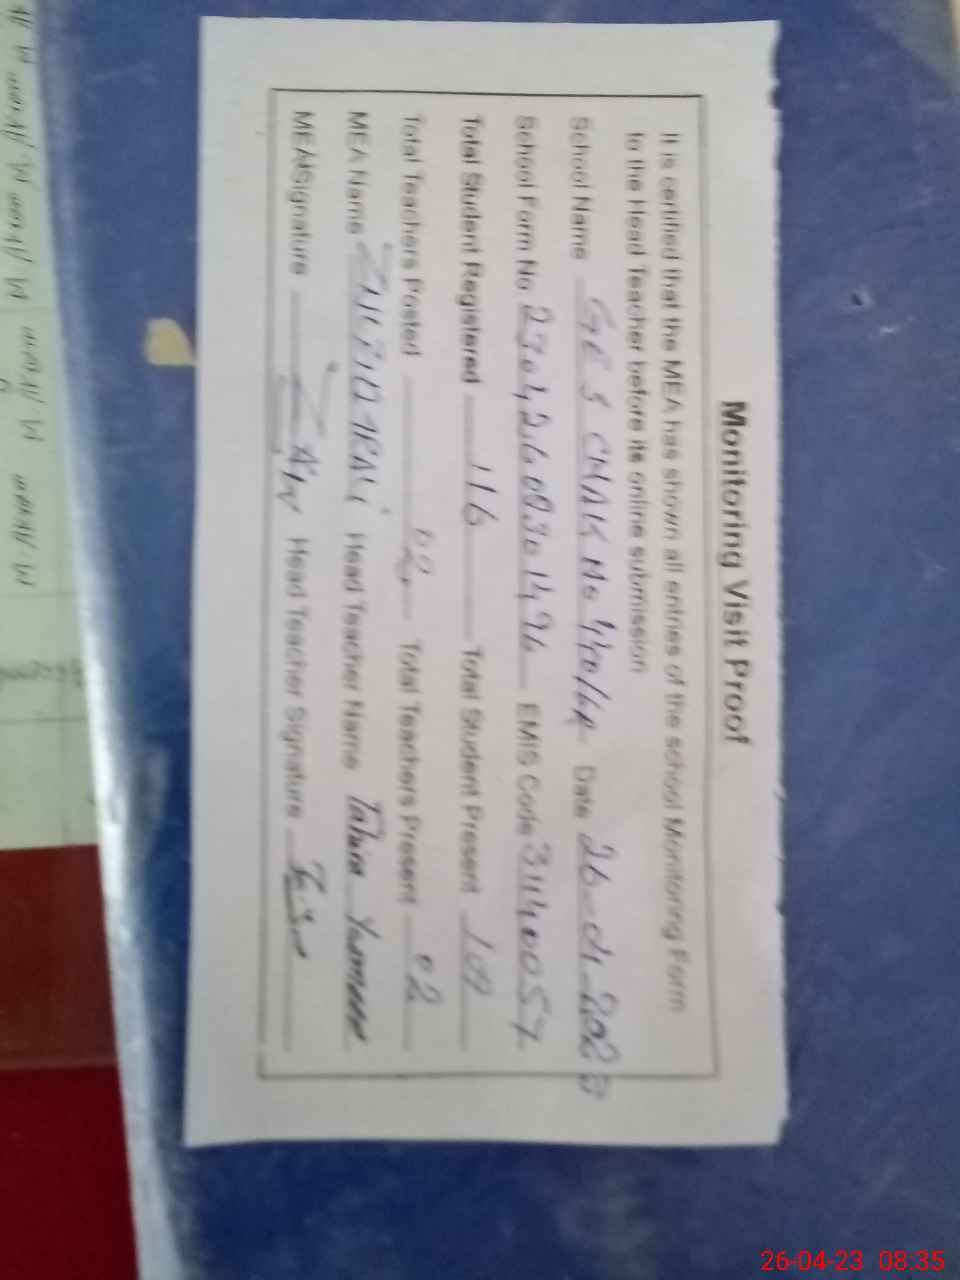 Monitoring Visit Proof
It is certified that the MEA has shown all entries of the school Monitoring Form
to the Head Teacher before its online submission
School Name GES CHAK No 440/6R Date 26-04-2023
School Form No EMIS Code 31140057
Total Student Registered 116 Total Student Present 109
Total Teachers Posted 02 Total Teachers Present 02
MEA Name ZULFIQAR ALI Head Teacher Name Tahira Yasmeen
MEA Signature Head Teacher Signature
M. Akram M. Akram M. Akram M. Akram
26-04-23 08:35